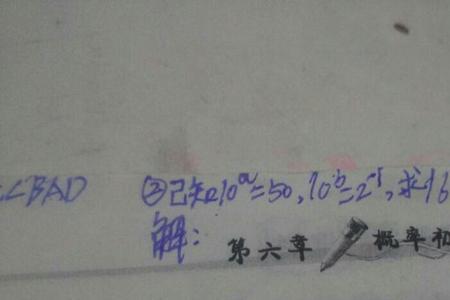 ∠BAD ②已知10ᵃ=50,10ᵇ=2⁻¹,求16
解:
第六章 概率初